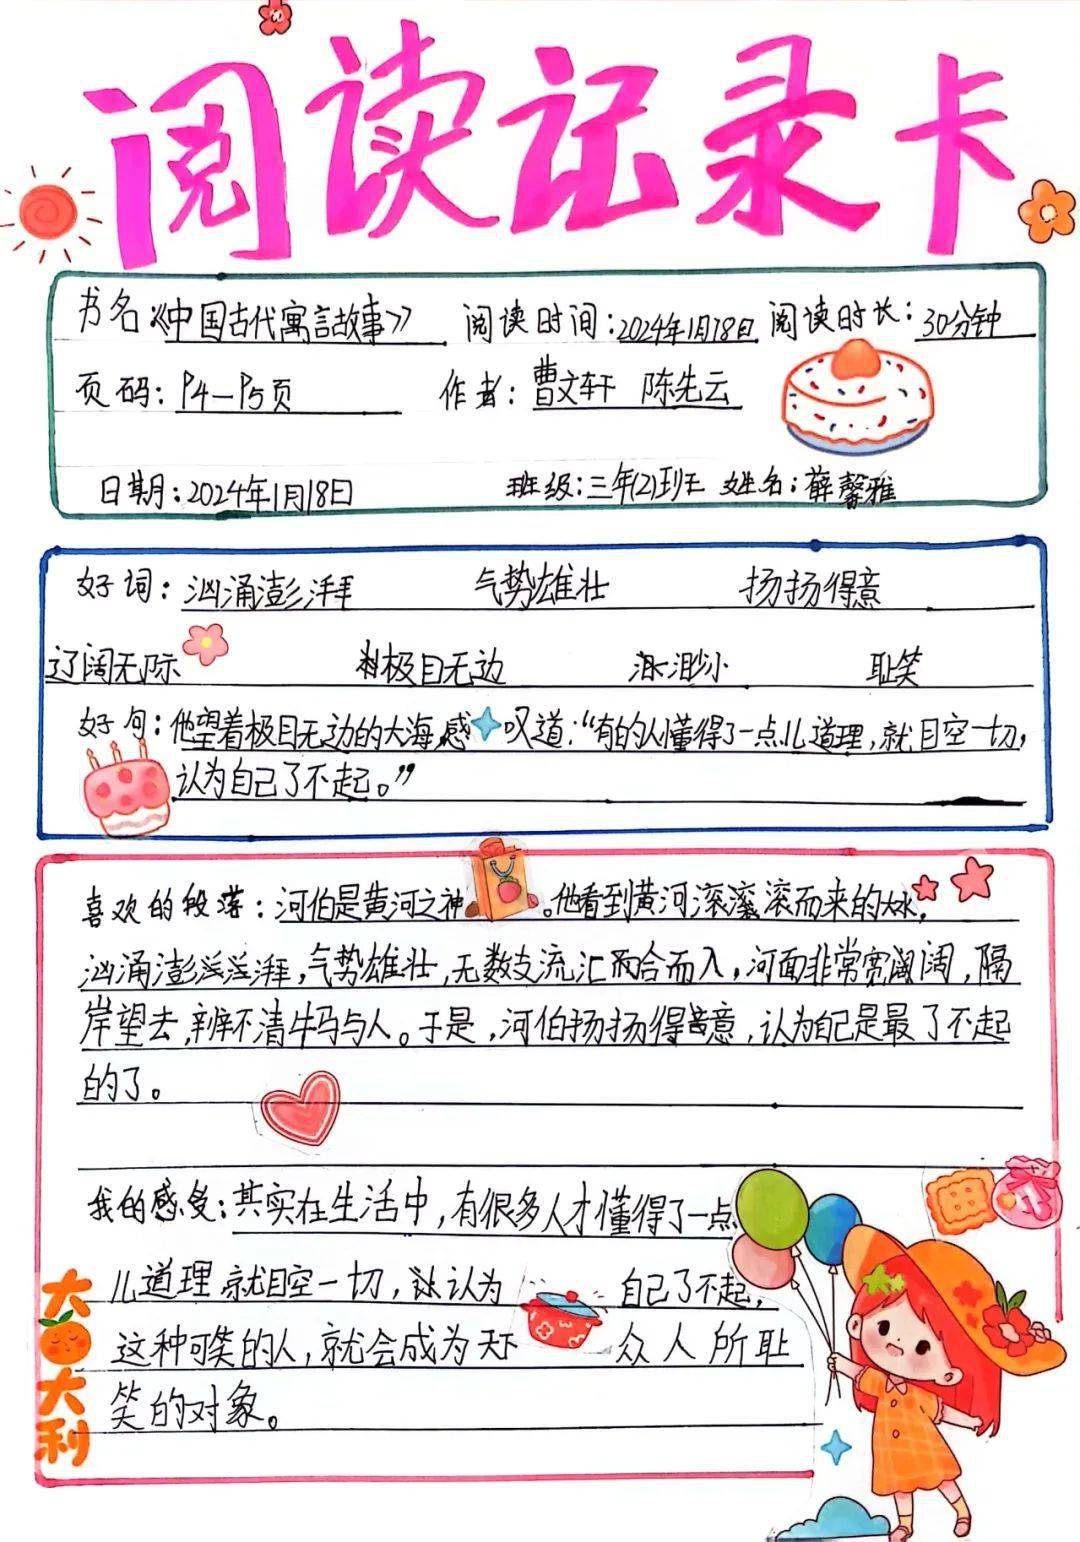 阅读记录卡
书名《中国古代寓言故事》 阅读时间:2024年1月18日 阅读时长:30分钟
页码:P4—P5页 作者:曹文轩 陈先云
日期:2024年1月18日 班级:三年(2)班 姓名:薛馨雅
好词:汹涌澎湃 气势雄壮 扬扬得意
辽阔无际 极目无边 渺小 耻笑
好句:他望着极目无边的大海,感叹道:“有的人懂得了一点儿道理,就目空一切,
认为自己了不起。”
喜欢的段落:河伯是黄河之神。他看到黄河滚滚滚而来的水,
汹涌澎湃,气势雄壮,无数支流汇合而入,河面非常宽阔,隔
岸望去,辨不清牛马与人。于是,河伯扬扬得意,认为自己是最了不起
的了。
我的感受:其实在生活中,有很多人才懂得了一点
儿道理就目空一切,认为自己了不起,
这种可笑的人,就会成为天下众人所耻
笑的对象。
大
大利